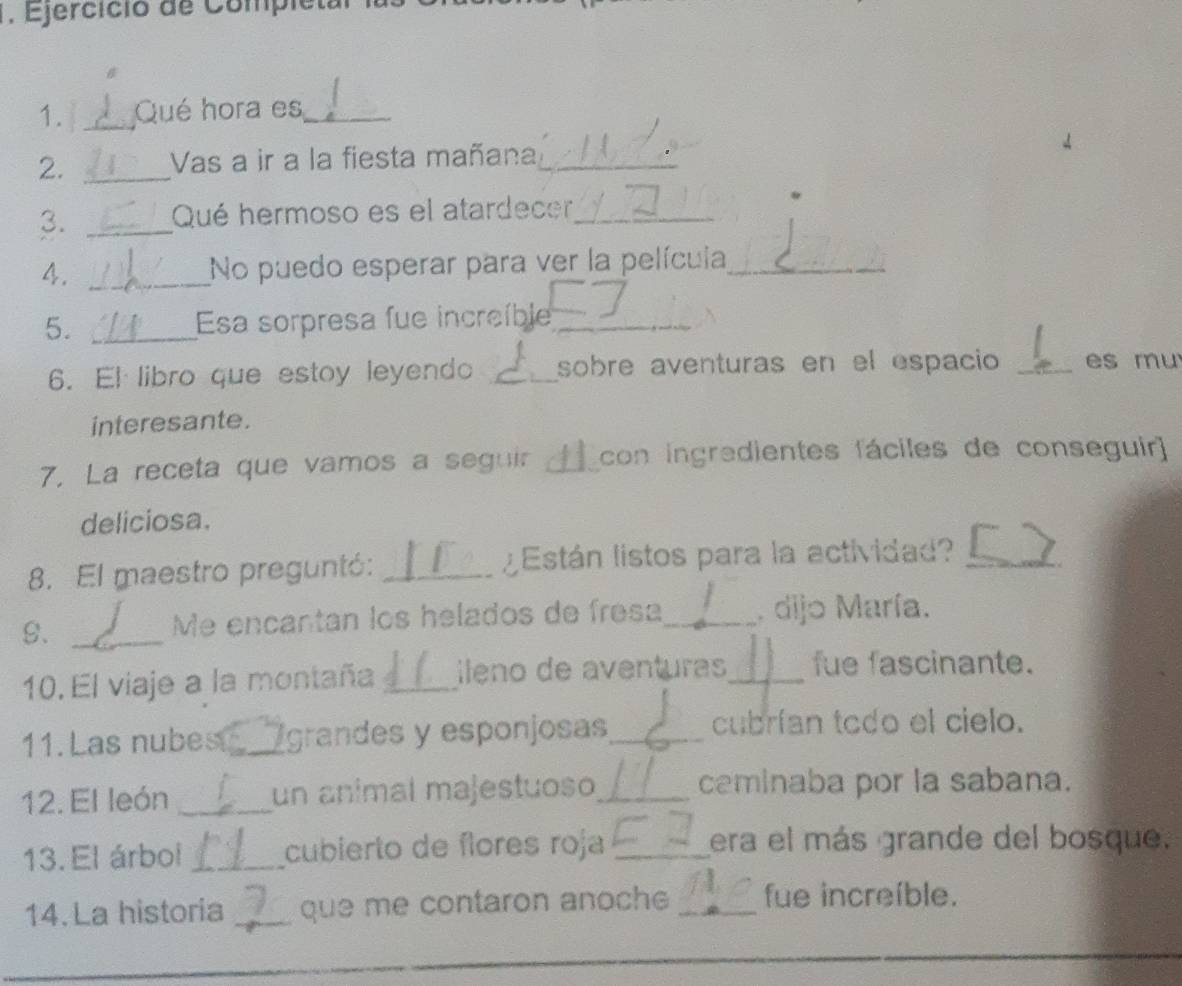 1. Ejercicio de Completar las
1. ____ Qué hora es____
2. ____ Vas a ir a la fiesta mañana ____
3. ____ Qué hermoso es el atardecer____
4. ____ No puedo esperar para ver la película____
5. ____ Esa sorpresa fue increíble____
6. El libro que estoy leyendo ____ sobre aventuras en el espacio ____ es mu
interesante.
7. La receta que vamos a seguir ____ con ingredientes fáciles de conseguir]
deliciosa.
8. El maestro preguntó: ____ ¿Están listos para la actividad? ____
9. ____ Me encantan los helados de fresa____, dijo María.
10. El viaje a la montaña ____ lleno de aventuras____ fue fascinante.
11. Las nubes ____ grandes y esponjosas____ cubrían todo el cielo.
12. El león ____ un animal majestuoso____ caminaba por la sabana.
13. El árbol ____ cubierto de flores roja ____ era el más grande del bosque.
14. La historia ____ que me contaron anoche ____ fue increíble.